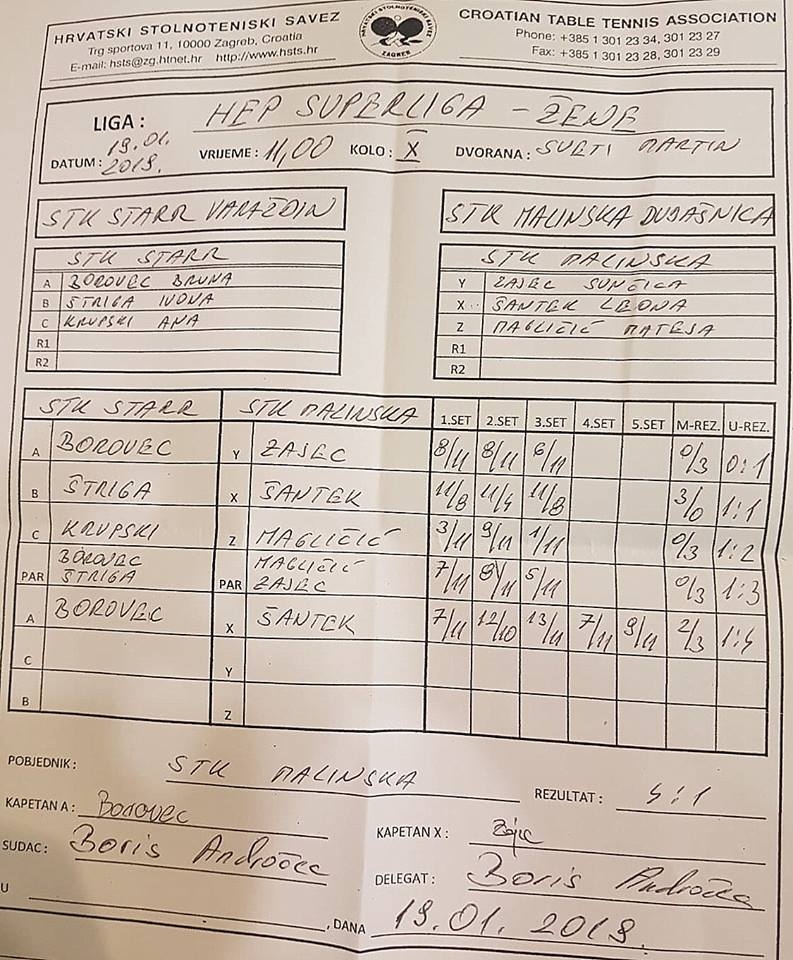 HRVATSKI STOLNOTENISKI SAVEZ
Trg sportova 11, 10000 Zagreb, Croatia
E-mail: hsts@zg.htnet.hr http://www.hsts.hr
HRVATSKI STOLNOTENISKI SAVEZ ZAGREB
CROATIAN TABLE TENNIS ASSOCIATION
Phone: +385 1 301 23 34, 301 23 27
Fax: +385 1 301 23 28, 301 23 29
LIGA : HEP SUPERLIGA - ŽENE
DATUM : 19.01. 2019. VRIJEME : 11,00 KOLO : X DVORANA : SVETI MARTIN
STK STARR VARAŽDIN
STK MALINSKA DUBAŠNICA
STK STARR
A BOROVEC BRUNA
B ŠTRIGA IVONA
C KRUPSKI ANA
R1
R2
STK MALINSKA
Y ZAJEC SUNČICA
X ŠANTEK LEONA
Z MAGLIČIĆ MATEJA
R1
R2
STK STARR STK MALINSKA 1.SET 2.SET 3.SET 4.SET 5.SET M-REZ. U-REZ.
A BOROVEC Y ZAJEC 8/11 8/11 6/11 0/3 0:1
B ŠTRIGA X ŠANTEK 11/8 11/4 11/8 3/0 1:1
C KRUPSKI Z MAGLIČIĆ 3/11 9/11 1/11 0/3 1:2
PAR BOROVEC ŠTRIGA PAR MAGLIČIĆ ZAJEC 7/11 9/11 5/11 0/3 1:3
A BOROVEC X ŠANTEK 7/11 12/10 13/11 7/11 9/11 2/3 1:4
C Y
B Z
POBJEDNIK : STK MALINSKA REZULTAT : 4:1
KAPETAN A : Borovec KAPETAN X : Zajec
SUDAC : Boris Andročec DELEGAT : Boris Andročec
U , DANA 19.01. 2019.